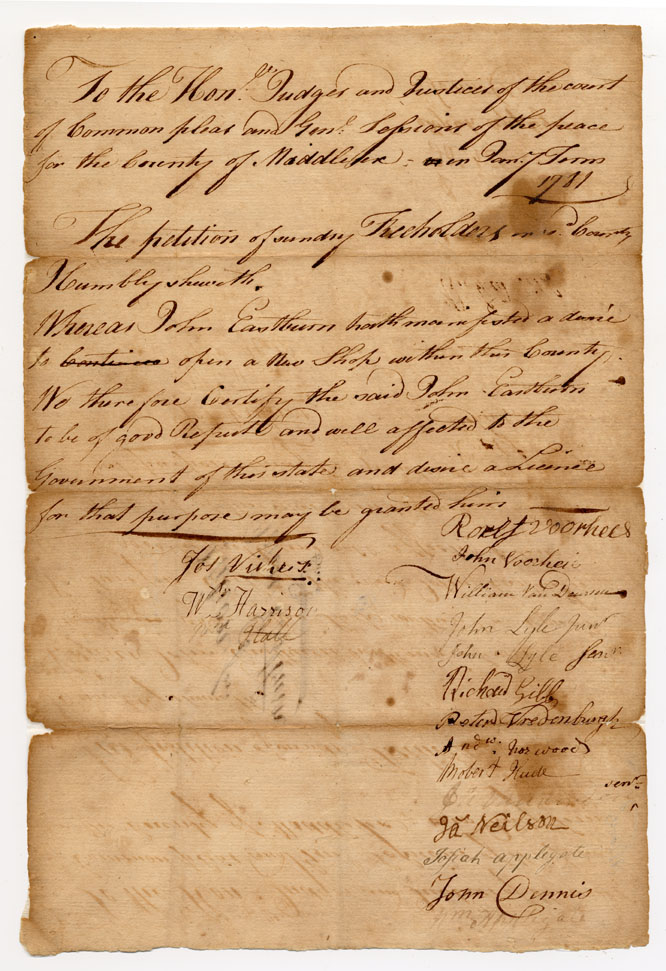 To the Hon.ble Judges and Justices of the court
of Common pleas and Gen.l Sessions of the peace
for the County of Middlesex - in Jan.y Term
1781
The petition of sundry Freeholders in s.d County
Humbly sheweth.
Whereas John Eastburn hath manifested a desire
to open a new Shop within this County.
We therefore Certify the said John Eastburn
to be of good Repute and well affected to the
Government of this state and desire a Licence
for that purpose may be granted him
Roelf Voorhees
Jos Vickers
John Voorheis
William Van Deursen
Wm Harrison
Wm Hall
John Lyle Junr
John Lyle Senr
Richard Gibb
Peter Vredenburgh
Andw. Norwood
Robert Hude
senr
Ja Neilson
Josiah applegate
John Dennis